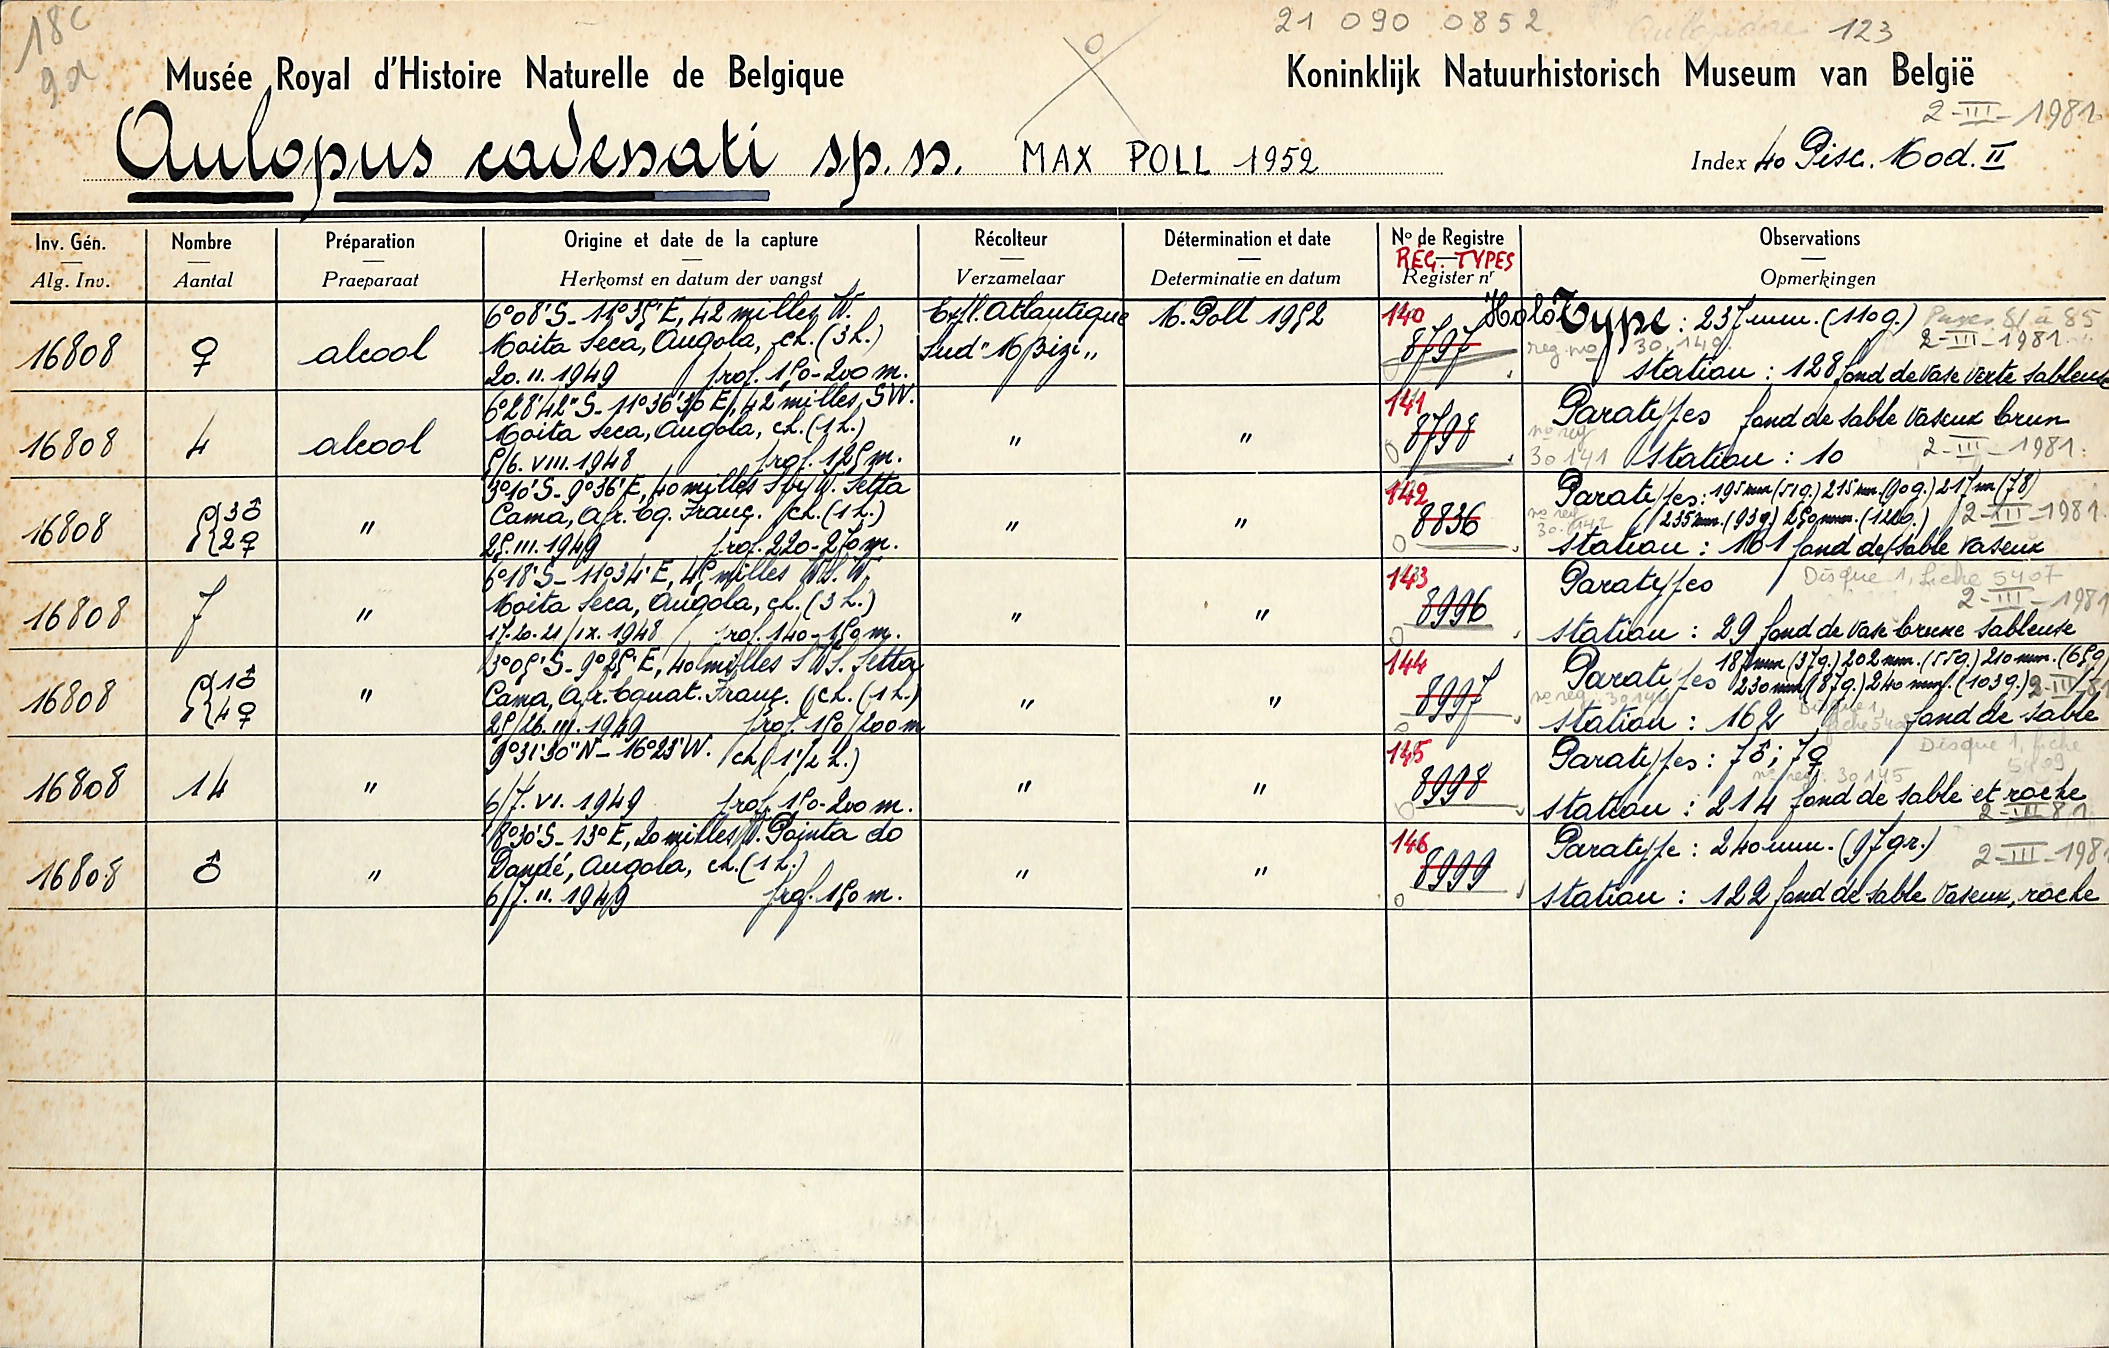 18c
9a
21 090 0852
123
Musée Royal d'Histoire Naturelle de Belgique
Koninklijk Natuurhistorisch Museum van België
2-III-1981
Aulopus cadenati sp.n. MAX POLL 1952
Index 40 Pisc. Mod. II
Inv. Gén. Nombre Préparation Origine et date de la capture Récolteur Détermination et date No de Registre Observations
REG. TYPES
Alg. Inv. Aantal Praeparaat Herkomst en datum der vangst Verzamelaar Determinatie en datum Register nr Opmerkingen
16808 ♀ alcool
6°08'S-11°35'E, 42 milles W.
Moita Seca, Angola, ch. (3 h.)
20.II.1949 prof. 150-200 m.
Exp. Atlantique
Sud "Mbizi"
M. Poll 1952
140
8797
HoloType : 237 mm. (110 g.) Pages 81 à 85
reg. no 30.140. 2-III-1981
station : 128 fond de vase verte sableuse
16808 4 alcool
6°28'42"S-11°36'30 E, 42 milles SW.
Moita Seca, Angola, ch. (1 h.)
5/6.VIII.1948 prof. 125 m.
" "
141
8798
Paratypes fond de sable vaseux brun
no reg 30141 station : 10 2-III-1981
16808 5 { 3♂ 2♀ "
3°10'S-9°36'E, 40 milles S by W. Setta
Cama, Afr. Eq. Franç. ch. (1 h.)
25.III.1949 prof. 220-270 m.
" "
142
8836
Paratypes : 195 mm (51 g.) 215 mm. (90 g.) 217 m (78)
no reg 30.142 235 mm. (93 g.) 250 mm. (122 g.) 2-III-1981
station : 161 fond de sable vaseux
16808 7 "
6°18'S-11°34'E, 45 milles W.S.W.
Moita Seca, Angola, ch. (3 h.)
17.20.21/IX.1948 prof. 140-150 m.
" "
143
8996
Paratypes Disque 1, fiche 5407
2-III-1981
station : 29 fond de vase brune sableuse
16808 5 { 1♂ 4♀ "
3°05'S-9°25'E, 40 milles S W.S. Setta
Cama, Afr. Equat. Franç. (ch. (1 h.)
25/26.III.1949 prof. 150/200 m
" "
144
8997
Paratypes 187 mm (37 g.) 202 mm. (55 g.) 210 mm. (650)
no reg: 30144 230 mm (87 g.) 240 mm. (103 g.) 2-III-81
Disque 1, fiche 5408
station : 162 fond de sable
16808 14 "
9°31'30"N-16°23'W. ch (1 1/2 h.)
6/7.VI.1949 prof. 150-200 m.
" "
145
8998
Paratypes : 7♂; 7♀ Disque 1, fiche 5409
no reg: 30145
station : 214 fond de sable et roche
2-III-81
16808 ♂ "
8°30'S-13°E, 20 milles W. Pointa do
Dandé, Angola, ch. (1 h.)
6/7.II.1949 prof. 150 m.
" "
146
8999
Paratype : 240 mm. (97 gr.) 2-III-1981
station : 122 fond de sable vaseux, roche